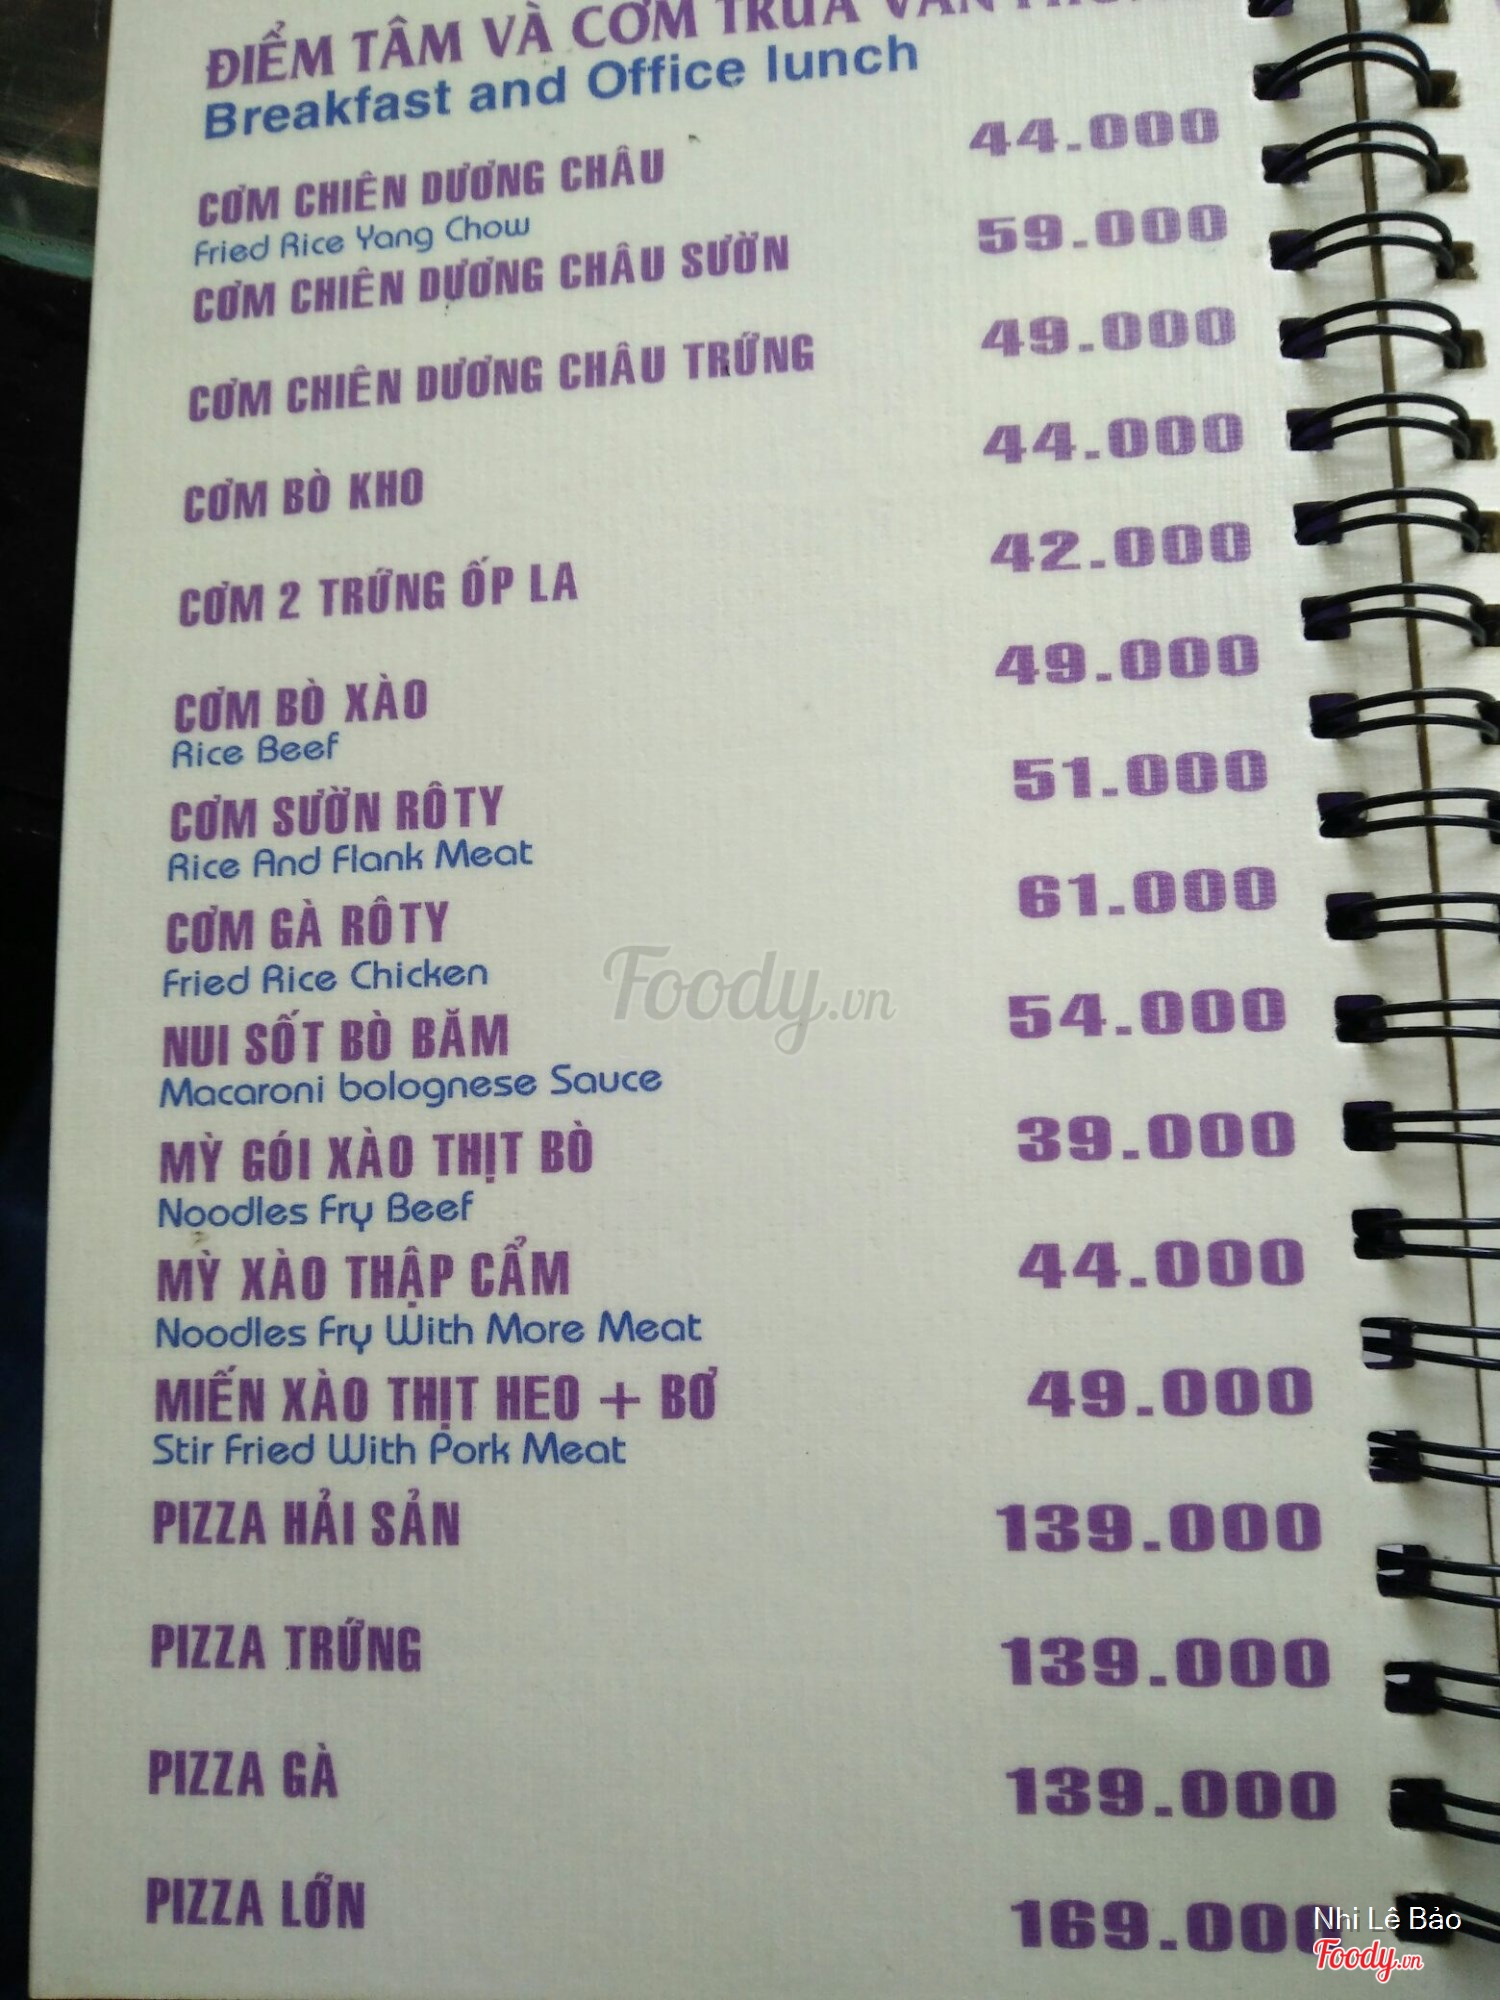 ĐIỂM TÂM VÀ CƠM TRƯA VĂN
Breakfast and Office lunch
CƠM CHIÊN DƯƠNG CHÂU 44.000
Fried Rice Yang Chow
CƠM CHIÊN DƯƠNG CHÂU SƯỜN 59.000
CƠM CHIÊN DƯƠNG CHÂU TRỨNG 49.000
CƠM BÒ KHO 44.000
CƠM 2 TRỨNG ỐP LA 42.000
CƠM BÒ XÀO 49.000
Rice Beef
CƠM SƯỜN RÔTY 51.000
Rice And Flank Meat
CƠM GÀ RÔTY 61.000
Fried Rice Chicken
NUI SỐT BÒ BĂM 54.000
Macaroni bolognese Sauce
MỲ GÓI XÀO THỊT BÒ 39.000
Noodles Fry Beef
MỲ XÀO THẬP CẨM 44.000
Noodles Fry With More Meat
MIẾN XÀO THỊT HEO + BƠ 49.000
Stir Fried With Pork Meat
PIZZA HẢI SẢN 139.000
PIZZA TRỨNG 139.000
PIZZA GÀ 139.000
PIZZA LỚN 169.000
Foody.vn
Nhi Lê Bảo
Foody.vn